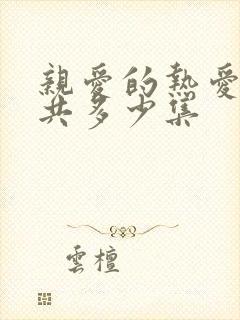 親愛的熱愛
共多少集
雲檀